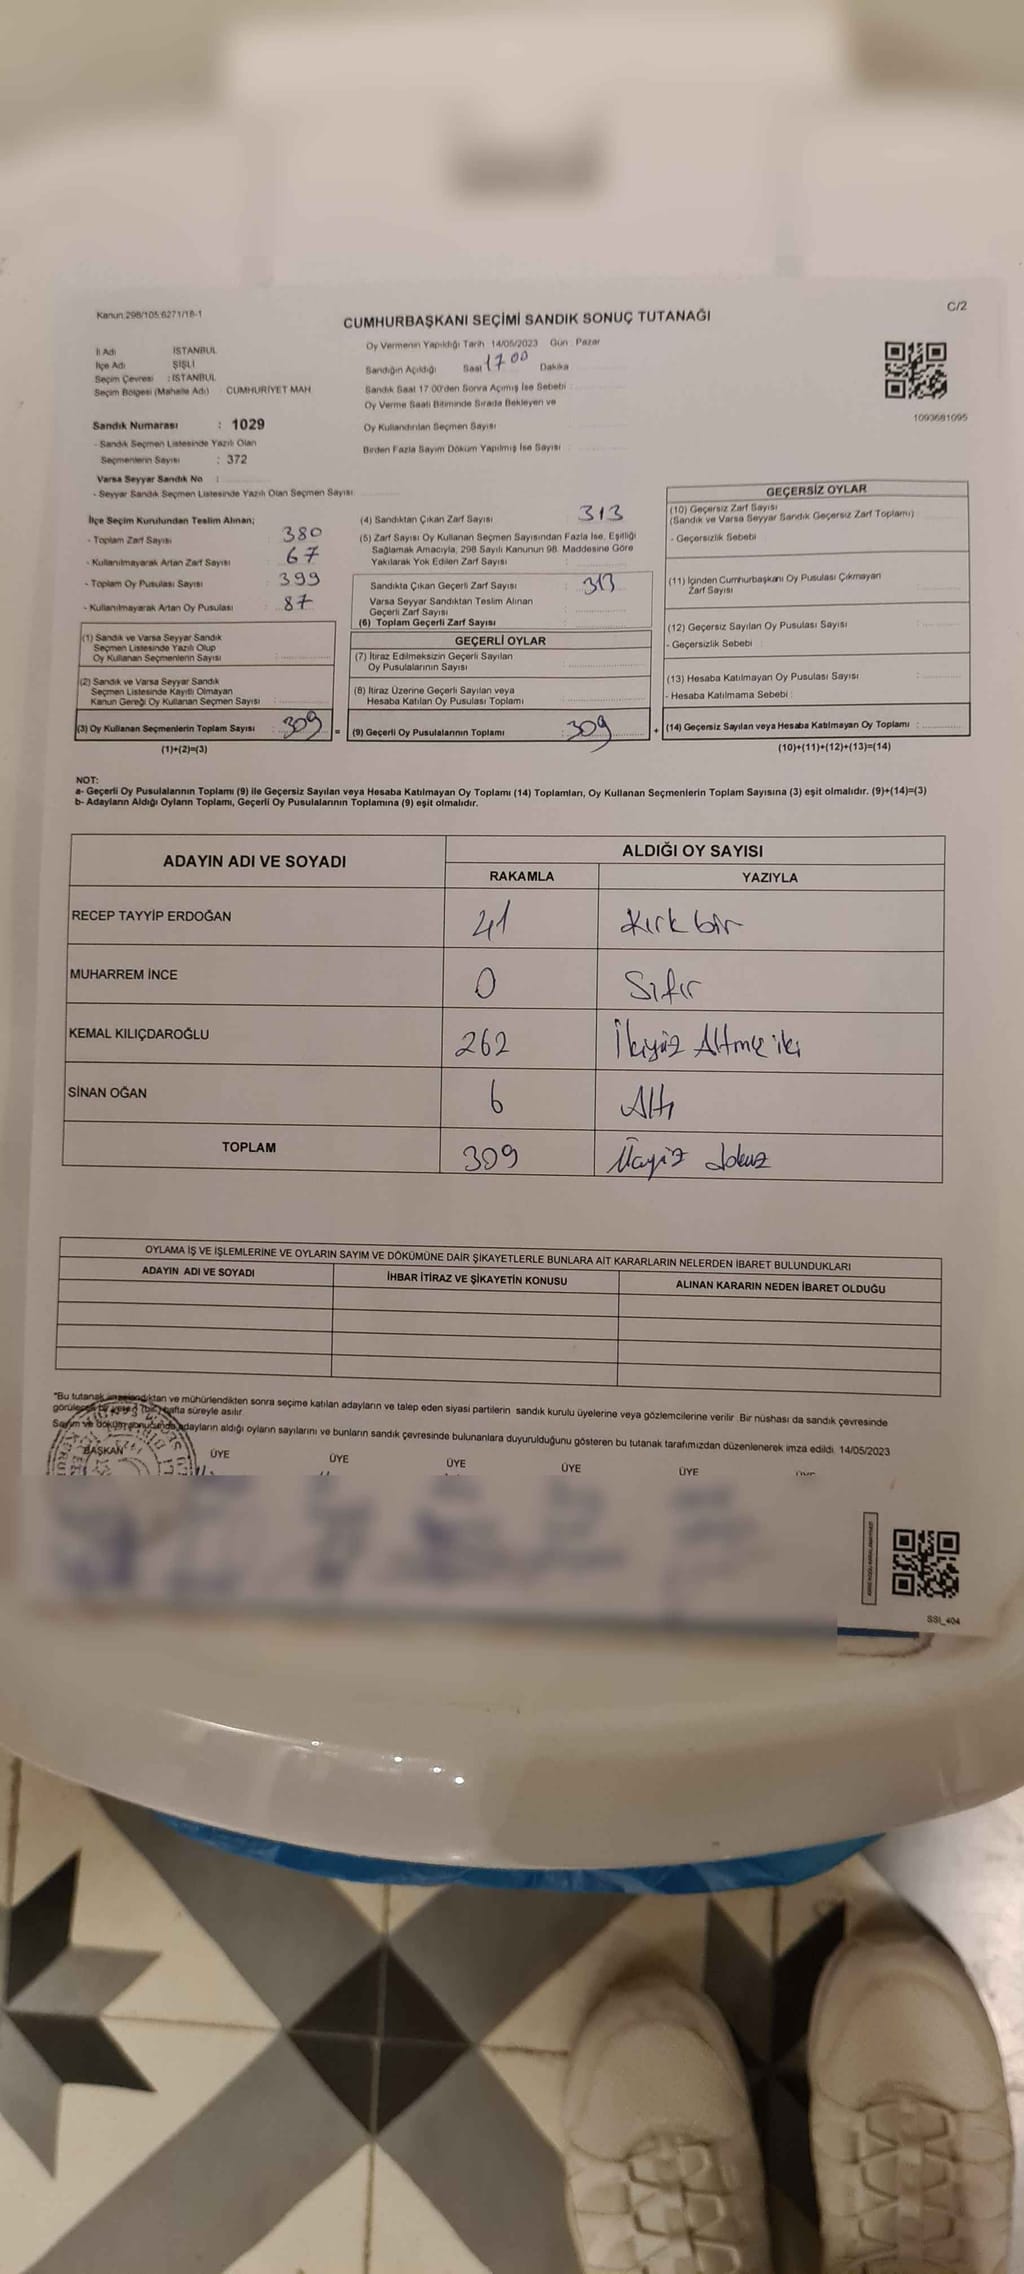 Kanun:298/105;6271/18-1
C/2
CUMHURBAŞKANI SEÇİMİ SANDIK SONUÇ TUTANAĞI
İl Adı İSTANBUL
İlçe Adı ŞİŞLİ
Seçim Çevresi : İSTANBUL
Seçim Bölgesi (Mahalle Adı) : CUMHURİYET MAH
Sandık Numarası : 1029
- Sandık Seçmen Listesinde Yazılı Olan
Seçmenlerin Sayısı : 372
Varsa Seyyar Sandık No :
- Seyyar Sandık Seçmen Listesinde Yazılı Olan Seçmen Sayısı
Oy Vermenin Yapıldığı Tarih 14/05/2023 Gün : Pazar
Sandığın Açıldığı Saat 17 00 Dakika
Sandık Saat 17:00'den Sonra Açılmış İse Sebebi
Oy Verme Saati Bitiminde Sırada Bekleyen ve
Oy Kullandırılan Seçmen Sayısı
Birden Fazla Sayım Döküm Yapılmış İse Sayısı
1093681095
İlçe Seçim Kurulundan Teslim Alınan;
- Toplam Zarf Sayısı : 380
- Kullanılmayarak Artan Zarf Sayısı : 67
- Toplam Oy Pusulası Sayısı : 399
- Kullanılmayarak Artan Oy Pusulası : 87
(1) Sandık ve Varsa Seyyar Sandık
Seçmen Listesinde Yazılı Olup
Oy Kullanan Seçmenlerin Sayısı
(2) Sandık ve Varsa Seyyar Sandık
Seçmen Listesinde Kayıtlı Olmayan
Kanun Gereği Oy Kullanan Seçmen Sayısı
(3) Oy Kullanan Seçmenlerin Toplam Sayısı : 309 =
(1)+(2)=(3)
(4) Sandıktan Çıkan Zarf Sayısı : 313
(5) Zarf Sayısı Oy Kullanan Seçmen Sayısından Fazla İse, Eşitliği
Sağlamak Amacıyla, 298 Sayılı Kanunun 98. Maddesine Göre
Yakılarak Yok Edilen Zarf Sayısı
Sandıkta Çıkan Geçerli Zarf Sayısı : 313
Varsa Seyyar Sandıktan Teslim Alınan
Geçerli Zarf Sayısı
(6) Toplam Geçerli Zarf Sayısı
GEÇERLİ OYLAR
(7) İtiraz Edilmeksizin Geçerli Sayılan
Oy Pusulalarının Sayısı
(8) İtiraz Üzerine Geçerli Sayılan veya
Hesaba Katılan Oy Pusulası Toplamı
(9) Geçerli Oy Pusulalarının Toplamı : 309 +
GEÇERSİZ OYLAR
(10) Geçersiz Zarf Sayısı
(Sandık ve Varsa Seyyar Sandık Geçersiz Zarf Toplamı)
- Geçersizlik Sebebi
(11) İçinden Cumhurbaşkanı Oy Pusulası Çıkmayan
Zarf Sayısı
(12) Geçersiz Sayılan Oy Pusulası Sayısı
- Geçersizlik Sebebi
(13) Hesaba Katılmayan Oy Pusulası Sayısı
- Hesaba Katılmama Sebebi :
(14) Geçersiz Sayılan veya Hesaba Katılmayan Oy Toplamı :
(10)+(11)+(12)+(13)=(14)
NOT:
a- Geçerli Oy Pusulalarının Toplamı (9) ile Geçersiz Sayılan veya Hesaba Katılmayan Oy Toplamı (14) Toplamları, Oy Kullanan Seçmenlerin Toplam Sayısına (3) eşit olmalıdır. (9)+(14)=(3)
b- Adayların Aldığı Oyların Toplamı, Geçerli Oy Pusulalarının Toplamına (9) eşit olmalıdır.
ADAYIN ADI VE SOYADI
ALDIĞI OY SAYISI
RAKAMLA YAZIYLA
RECEP TAYYİP ERDOĞAN 41 Kırk bir
MUHARREM İNCE 0 Sıfır
KEMAL KILIÇDAROĞLU 262 İkiyüz Altmış iki
SİNAN OĞAN 6 Altı
TOPLAM 309 Üçyüz dokuz
OYLAMA İŞ VE İŞLEMLERİNE VE OYLARIN SAYIM VE DÖKÜMÜNE DAİR ŞİKAYETLERLE BUNLARA AİT KARARLARIN NELERDEN İBARET BULUNDUKLARI
ADAYIN ADI VE SOYADI İHBAR İTİRAZ VE ŞİKAYETİN KONUSU ALINAN KARARIN NEDEN İBARET OLDUĞU
"Bu tutanak imzalandıktan ve mühürlendikten sonra seçime katılan adayların ve talep eden siyasi partilerin sandık kurulu üyelerine veya gözlemcilerine verilir. Bir nüshası da sandık çevresinde
hafta süreyle asılır.
Sayım ve döküm sonucunda adayların aldığı oyların sayılarını ve bunların sandık çevresinde bulunanlara duyurulduğunu gösteren bu tutanak tarafımızdan düzenlenerek imza edildi. 14/05/2023
BAŞKAN ÜYE ÜYE ÜYE ÜYE ÜYE
SSI_404